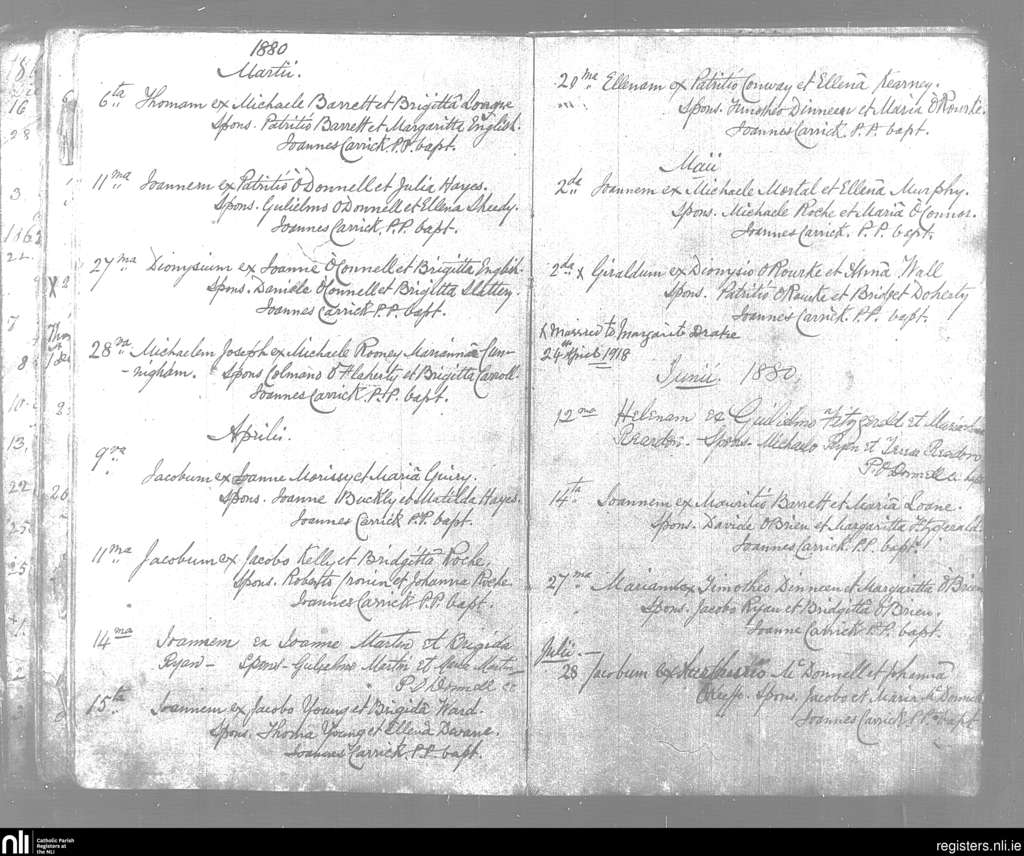 1880
Martii.
6ta Thomam ex Michaele Barrett et Brigittâ
Spons. Patritio Barrett et Margaritta English.
Joannes Carrick, P.P. bapt.
11ma Joannem ex Patritio O'Donnell et Julia Hayes.
Spons. Gulielmo O'Donnell et Ellena Sheedy.
Joannes Carrick, P.P. bapt.
27ma Dionysium ex Joanne O'Connell et Brigitta English.
Spons. Daniele O'Connell et Brigitta Slattery.
Joannes Carrick P.P. bapt.
28va Michaelem Joseph ex Michaele Rooney Mariannâ Cun-
-nigham. Spons Colmano O'Flaherty et Brigitta Carroll
Joannes Carrick, P.P. bapt.
Aprilii.
9va
Jacobum ex Joanne Morissy et Mariâ Guiry.
Spons. Joanne Buckly et Matilda Hayes.
Joannes Carrick P.P. bapt.
11ma Jacobum ex Jacobo Kelly et Bridgittâ Roche.
Spons. Roberto Cronin et Johanna Roche.
Joannes Carrick P.P. bapt.
14ma Joannem ex Joanne Martin et Brigida
Ryan - Spons - Gulielmo Martin et Martin
P O Donnell
15ta Joannem ex Jacobo Young et Brigida Ward.
Spons. Thoma Young et Ellenâ Devane.
Joannes Carrick, P.P. bapt.
20ma Ellenam ex Patritio Conway et Ellenâ Kearney.
Spons. Timotheo Dinneen et Maria O'Rourke.
Joannes Carrick, P.P. bapt.
Maii
2da Joannem ex Michaele Mortal et Ellenâ Murphy.
Spons. Michaele Roche et Mariâ O'Connor.
Joannes Carrick. P.P. bapt.
2da x Giraldum ex Dionysio O'Rourke et Annâ Wall
Spons. Patritio O'Rourke et Bridget Doherty
Joannes Carrick. P.P. bapt.
x Married to Margaret Drake
24th April 1918
Junii 1880
12ma Helenam ex Gulielmo Fitzgerald et
Reardon - Spons. Michaelo Ryan et Reardon
P O Donnell
14ta Joannem ex Mauritio Barrett et Mariâ Loane.
Spons. Davide O'Brien et Margaritta Fitzgerald
Joannes Carrick P.P. bapt.
27ma ex Timotheo Dinneen et Margaritta O'Brien
Spons. Jacobo Ryan et Bridgitta O'Brien.
Joanne Carrick P.P. bapt.
Julii. -
28 Jacobum ex McDonnell et Johannâ
Spons. Jacobo et Maria McDonnell
Joannes Carrick P.P. bapt
nli Catholic Parish
Registers at
the NLI
registers.nli.ie